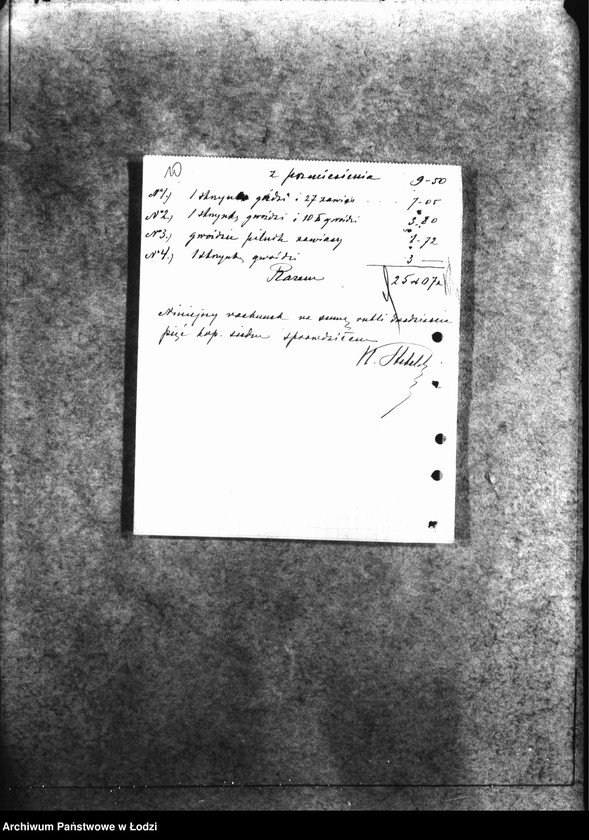 z przeniesienia 9-50
№1.) 1 skrzynka goździ i 27 zawias 7-05
№2.) 1 skrzynk. gwoździ i 10 ℔ gwoździ 3.80
№3.) gwoździe zawiasy 1-72
№4.) 1 skrzynk. gwoździ 3 —
Razem 25 07
Niniejszy rachunek na sumę rubli dwadzieścia
pięć kop. siedm sprawdziłem
K.
Archiwum Państwowe w Łodzi